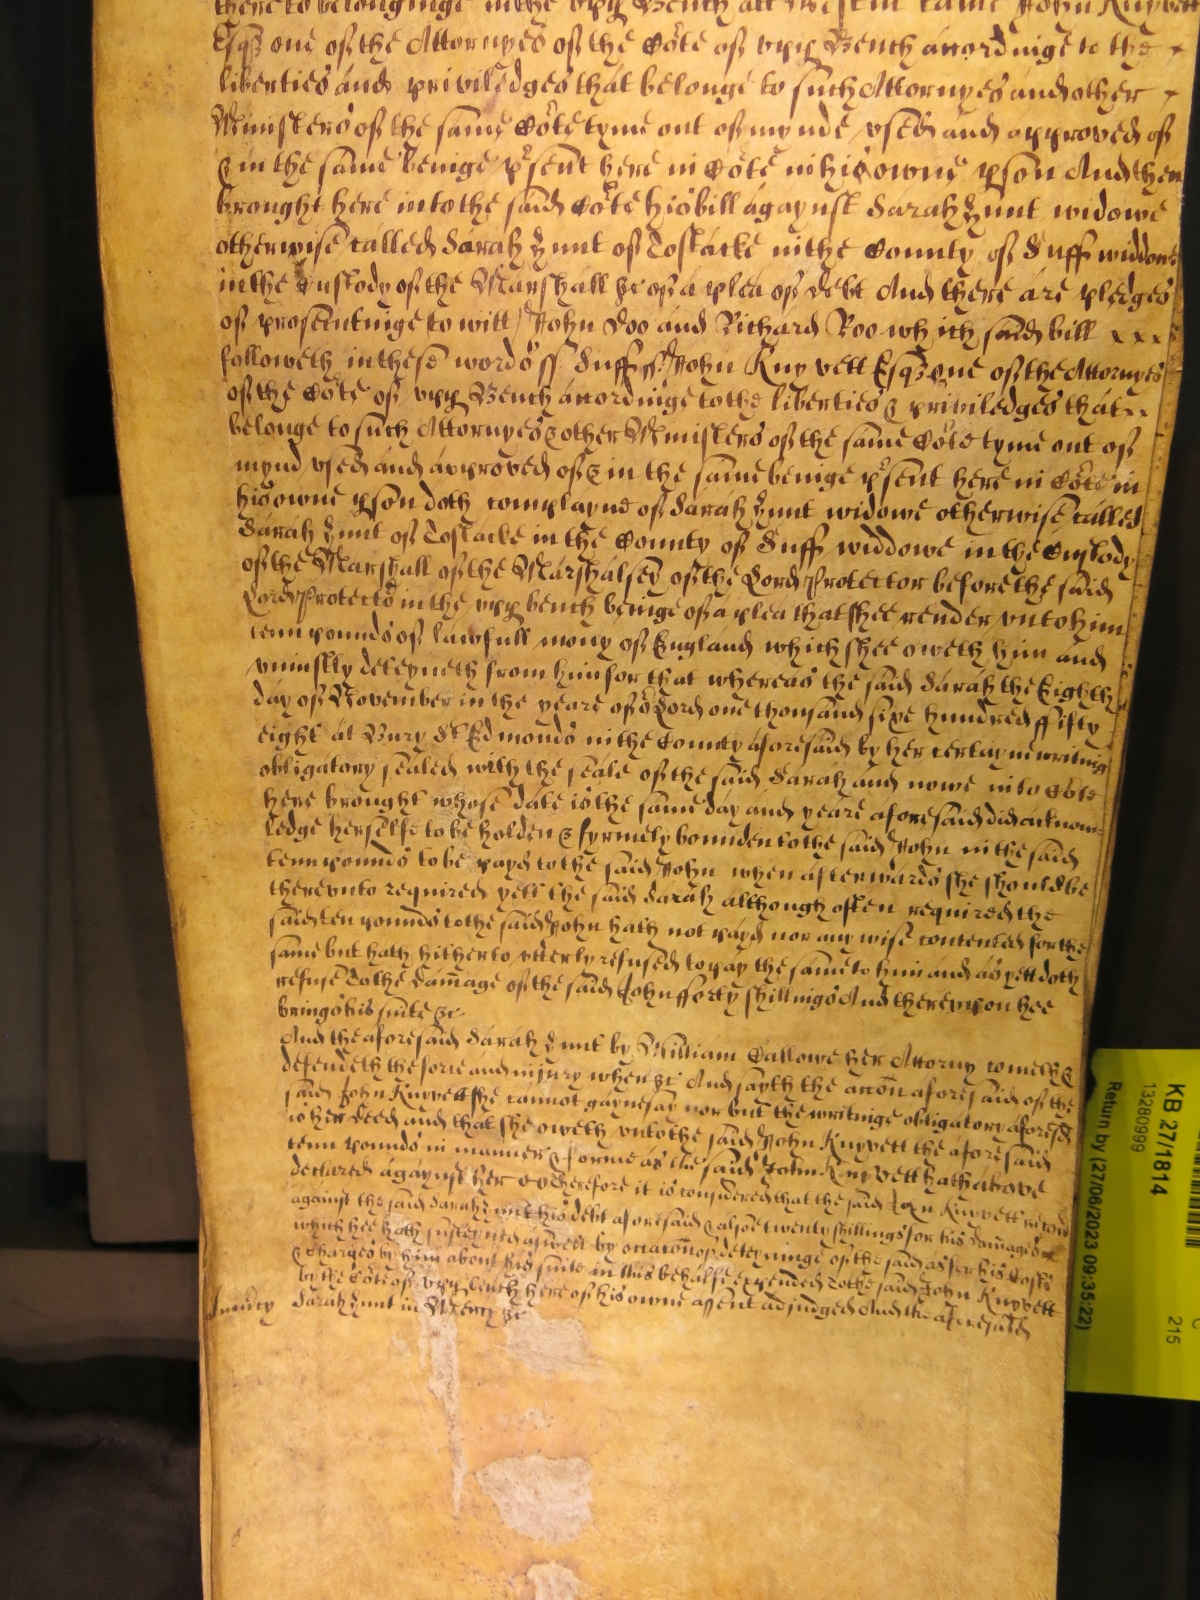 thereto belonginge in the upp Bench att Westm came John Knyvett
Esqz one of the Attornyes of the Côte of upp Bench accordinge to the
liberties and priviledges that belonge to such Attornyes and other
Ministers of the same Côte tyme out of mynde used and approved of
& in the same beinge p'sent here in Côte in his owne pson And then
brought here into the said Côte his bill agaynst Sarah Hunt widowe
otherwise called Sarah Hunt of Tostacke in the County of Suff widdowe
in the Custody of the Marshall &c of a plea of debt And there are pledges
of prosecutinge to witt John Doo and Richard Roo which said bill x x x
followeth in these words ss Suff ss John Knyvett Esqz one of the Attornyes
of the Côte of upp Bench accordinge to the liberties & priviledges that
belonge to such Attornyes & other Ministers of the same Côte tyme out of
mynd used and approved of & in the same beinge p'sent here in Côte in
his owne pson doth complayne of Sarah Hunt widowe otherwise called
Sarah Hunt of Tostacke in the County of Suff widdowe in the Custody
of the Marshall of the Marshalsey of the Lord Protector before the said
Lord Protector in the upp bench beinge of a plea that shee render unto him
tenn pounds of lawfull mony of England which shee oweth him and
uniustly deteyneth from him for that whereas the said Sarah the Eighth
day of November in the yeare of or Lord one thousand sixe hundred ffifty
eight at Bury St Edmonds in the County aforesaid by her certayne writing
obligatory sealed with the seale of the said Sarah and nowe into Côte
here brought whose date is the same day and yeare aforesaid did acknow=
ledge herselfe to be holden & fyrmely bounden to the said John in the said
tenn pounds to be payd to the said John when afterwards she should be
thereunto required yett the said Sarah although often required the
said ten pounds to the said John hath not payd nor any wise contented for the
same but hath hitherto utterly refused to pay the same to him and as yett doth
refuse To the damage of the said John fforty shillings And thereupon hee
brings his suite &c
And the aforesaid Sarah Hunt by William Callowe her Attorny cometh &
defendeth the force and injury when &c And sayth the accon aforesaid of the
said John Knyvett she cannot gaynesay nor but the writinge obligatory aforesd
is her deed and that she oweth unto the said John Knyvett the aforesaid
tenn pounds in manner & forme as the said John Knyvett hath above
declared agaynst her Therefore it is considered that the said John Knyvett recover
against the said Sarah Hunt his debt aforesaid & alsoe twenty shillings for his damages
which hee hath susteyned aswell by occacon of deteyninge of the said as for his Costs
& charges by him about his suite in this behalfe expended to the said John Knyvett
by the Côte of upp bench here of his owne assent adjudged And the aforesaid
In mercy Sarah Hunt in Mercy &c
KB 27/1814
13280999
215
Return by (27/06/2023 09:35:22)